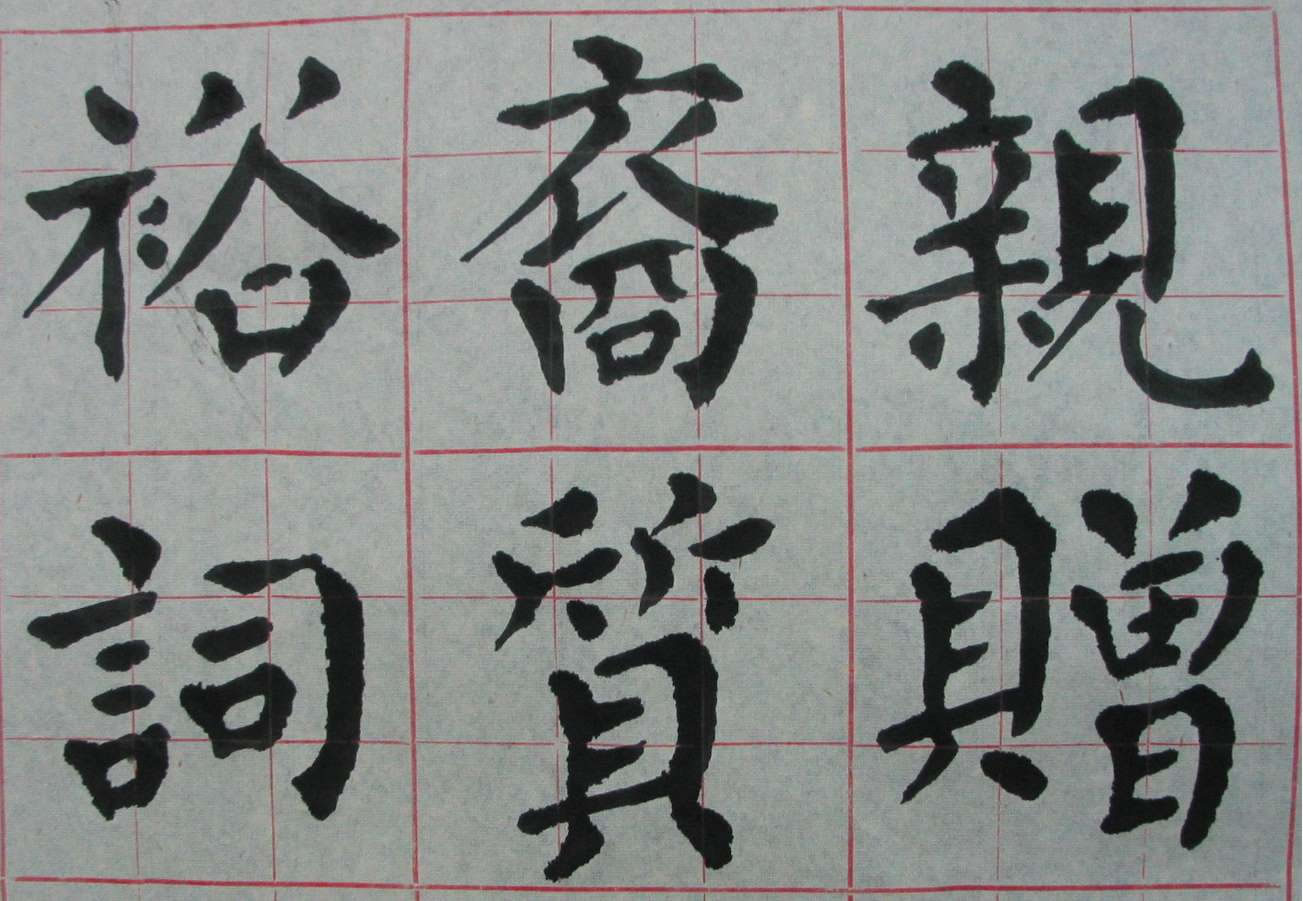 裕裔親
詞質贈